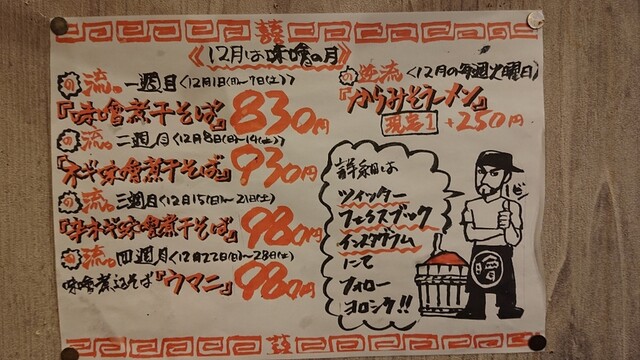 囍
《12月は味噌の月》
の流。一週目〈12月1日(日)〜7日(土)〉
『味噌煮干そば』830円
の流。二週目〈12月8日(日)〜14(土)〉
味噌煮干そば』930円
の流。三週目〈12月15(日)〜21日(土)
味噌煮干そば』980円
の流。四週目〈12月22日(日)〜28日(土)
味噌煮込そば『ウマニ』980円
の逆流〈12月の毎週火曜日〉
『からみそラーメン』
限定1 +250円
詳細は
ツイッター
フェイスブック
インスタグラム
にて
フォロー
ヨロシク!!
噌
囍